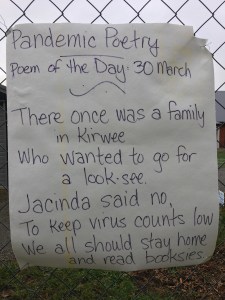 Pandemic Poetry
Poem of the Day: 30 March
There once was a family
in Kirwee
Who wanted to go for
a look-see.
Jacinda said no,
To keep virus counts low
We all should stay home
and read booksies